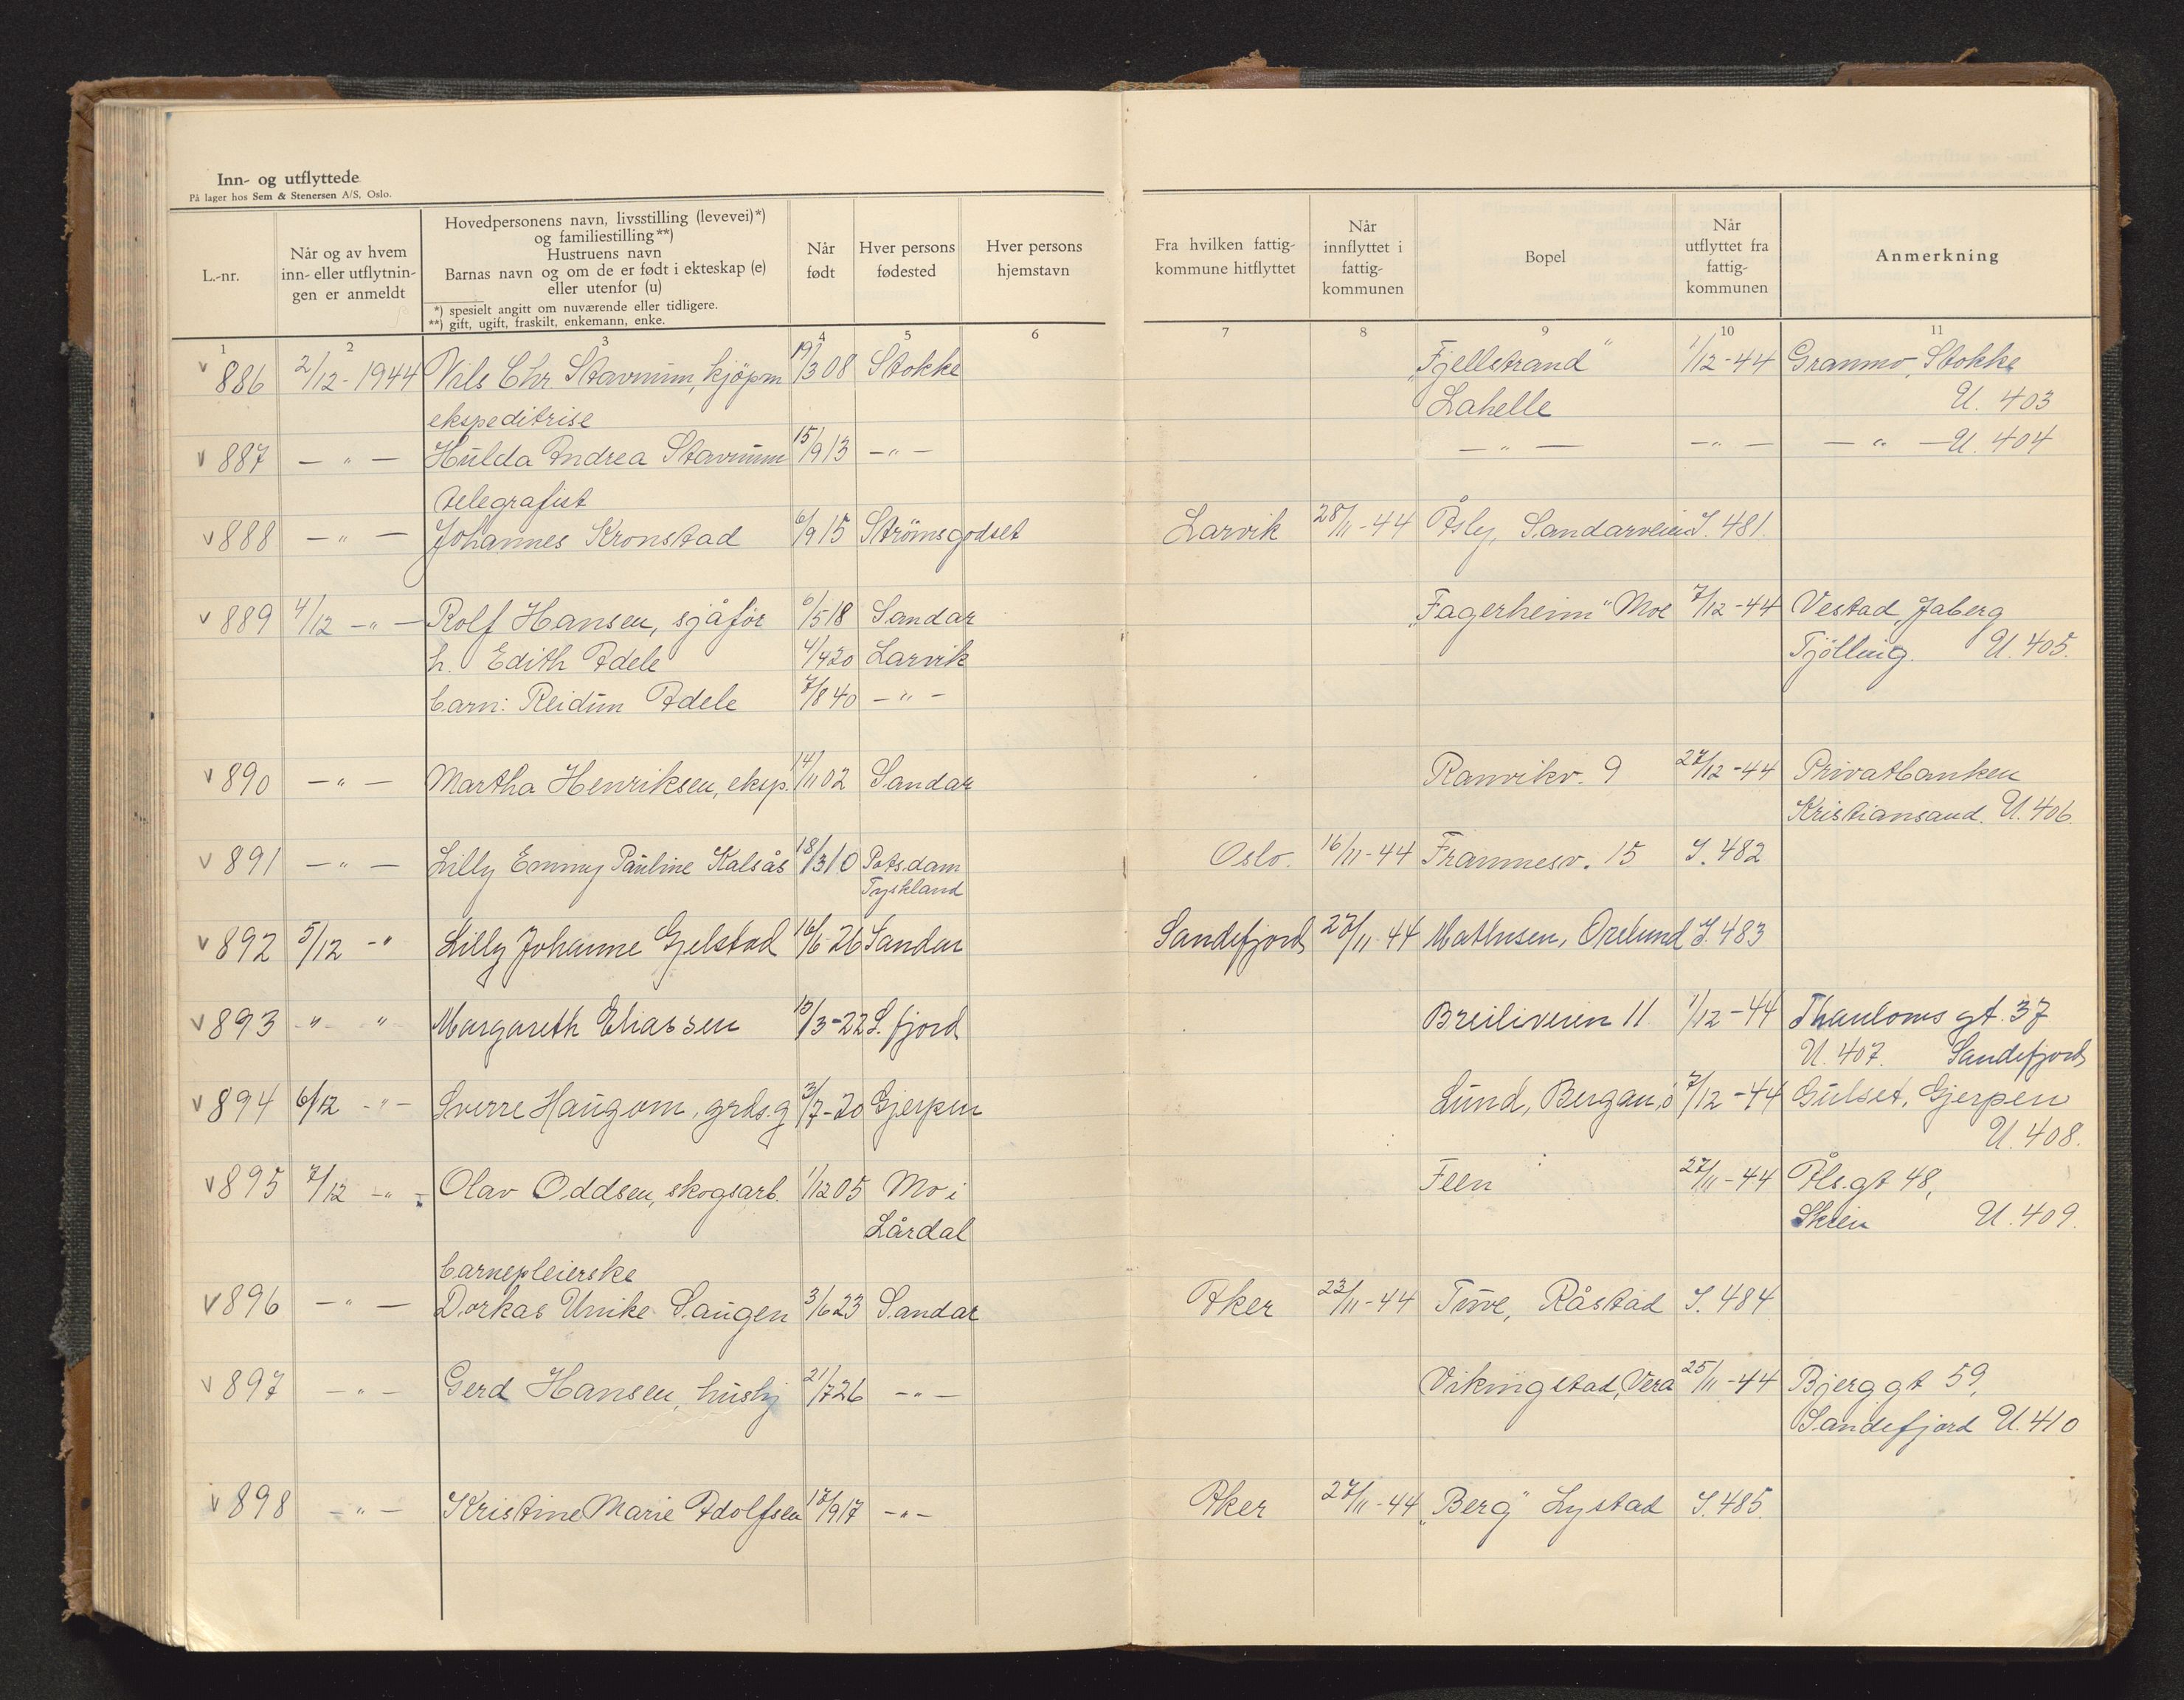 Inn- og utflyttede
På lager hos Sem & Stenersen A/S, Oslo.
L.-nr.
Når og av hvem
inn- eller utflytnin-
gen er anmeldt
Hovedpersonens navn, livsstilling (levevei)*)
og familiestilling**)
Hustruens navn
Barnas navn og om de er født i ekteskap (e)
eller utenfor (u)
*) spesielt angitt om nuværende eller tidligere.
**) gift, ugift, fraskilt, enkemann, enke.
Når
født
Hver persons
fødested
Hver persons
hjemstavn
Fra hvilken fattig-
kommune hitflyttet
Når
innflyttet i
fattig-
kommunen
Bopel
Når
utflyttet fra
fattig-
kommunen
Anmerkning
1 2 3 4 5 6 7 8 9 10 11
v 886 2/12-1944 Nils Chr Stavnum, kjøpm 19/3 08 Stokke „Fjellstrand" 1/12-44 Granmo, Stokke
ekspeditrise Lahelle U. 403
v 887 — " — Hulda Andrea Stavnum 15/9 13 — " — — " — — " — — " — U. 404
telegrafist
v 888 — " — Johannes Kronstad 6/9 15 Strömsgodset Larvik 28/11-44 Åsly, Sandarveien I. 481.
v 889 4/12 — " — Rolf Hansen, sjåfør 6/5 18 Sandar „Fagerheim" Moe 7/12-44 Vestad, Jaberg
h. Edith Adele 4/4 20 Larvik Tjölling. U. 405.
barn: Reidun Adele 7/8 40 — " —
v 890 — " — Martha Henriksen, eksp. 14/11 02 Sandar Ranvikv. 9 27/12-44 Privatbanken
Kristiansand. U. 406.
v 891 — " — Lilly Emmy Pauline Kalsås 18/3 10 Potsdam Oslo. 16/11-44 Framnesv. 15 I. 482
Tyskland
v 892 5/12 - " Lilly Johanne Gjelstad 16/6-26 Sandar Sandefjord 27/11-44 Mathisen, Orelund I. 483
v 893 - " - " Margareth Eliassen 13/3-22 S. fjord Breiliveien 11. 1/12-44 Thaulows gt. 37
U. 407. Sandefjord
v 894 6/12 - " - Sverre Haugom, grds.g 3/7-20 Gjerpen Lund, Bergan, ö 7/12-44 Gulset, Gjerpen
U. 408.
v 895 7/12 - " - Olav Oddsen, skogsarb. 1/12 05 Mo i Feen 27/11-44 Åls.gt 48,
Lårdal Skien U. 409.
barnepleierske
v 896 — " — Dorkas Unike Saugen 3/6 23 Sandar Aker 22/11-44 Tuve, Råstad I. 484
v 897 — " — Gerd Hansen, hushj 21/7 26 — " — Vikingstad, Vera 25/11-44 Bjerggt 59,
Sandefjord U. 410
v 898 — " — Kristine Marie Adolfsen 17/9 17 — " — Aker 27/11-44 „Berg" Lystad I. 485.